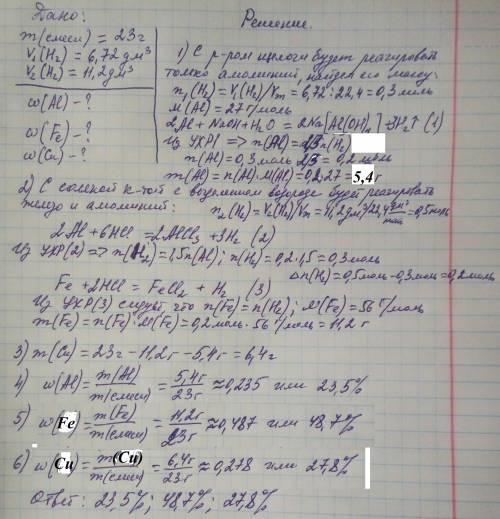 Дано:
m(смеси) = 23г
V₁(H₂) = 6,72 дм³
V₂(H₂) = 11,2 дм³
ω(Al) - ?
ω(Fe) - ?
ω(Cu) - ?
Решение.
1) С р-ром щелочи будет реагировать
только алюминий, найдем его массу:
n₁(H₂) = V₁(H₂)/Vm = 6,72 : 22,4 = 0,3 моль
M(Al) = 27 г/моль
2Al + NaOH + H₂O = 2Na[Al(OH)₄] + 3H₂↑ (1)
Из УХР1 => n(Al) = 2/3 n(H₂)
n(Al) = 0,3 моль 2/3 = 0,2 моль
m(Al) = n(Al)·M(Al) = 0,2·27 = 5,4 г
2) С соляной к-той с выделением водорода будет реагировать
железо и алюминий: n₂(H₂) = V₂(H₂)/Vm = 11,2дм³/22,4 дм³/моль = 0,5 моль
2Al + 6HCl = 2AlCl₃ + 3H₂ (2)
Из УХР(2) => n(H₂) = 1,5n(Al); n(H₂) = 0,2·1,5 = 0,3 моль
Δn(H₂) = 0,5 моль - 0,3 моль = 0,2 моль
Fe + 2HCl = FeCl₂ + H₂ (3)
Из УХР(3) следует, что n(Fe) = n(H₂); M(Fe) = 56 г/моль
m(Fe) = n(Fe)·M(Fe) = 0,2 моль · 56 г/моль = 11,2 г
3) m(Cu) = 23г - 11,2г - 5,4г = 6,4г
4) ω(Al) = m(Al)/m(смеси) = 5,4г/23г ≈ 0,235 или 23,5%
5) ω(Fe) = m(Fe)/m(смеси) = 11,2г/23г ≈ 0,487 или 48,7%
6) ω(Cu) = m(Cu)/m(смеси) = 6,4г/23г ≈ 0,278 или 27,8%
Ответ: 23,5%; 48,7%; 27,8%